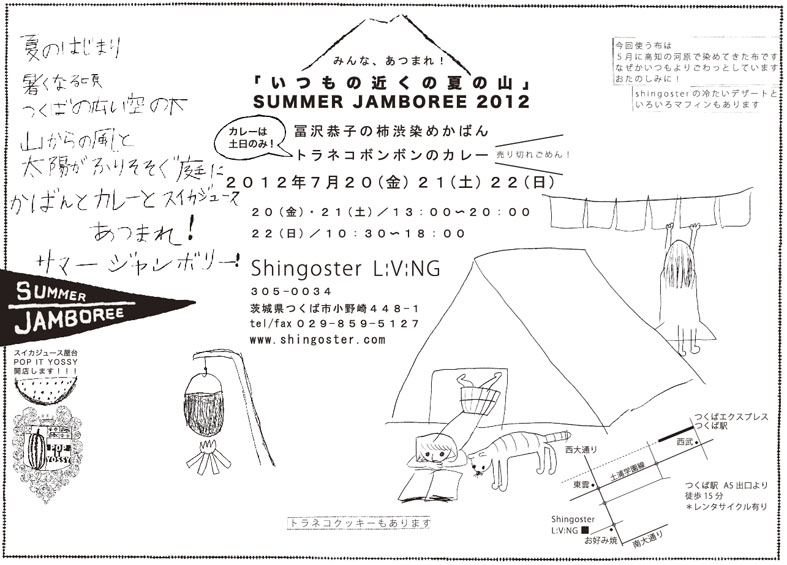 夏のはじまり
暑くなる頃
つくばの広い空の下
山からの風と
太陽がふりそそぐ庭に
かばんとカレーとスイカジュース
あつまれ!
サマージャンボリー!
みんな、あつまれ!
「いつもの近くの夏の山」
SUMMER JAMBOREE 2012
カレーは
土日のみ!
冨沢恭子の柿渋染めかばん
トラネコボンボンのカレー
売り切れごめん!
2012年7月20(金)21(土)22(日)
20(金)・21(土)/13:00〜20:00
22(日)/10:30〜18:00
Shingoster L:V:NG
305-0034
茨城県つくば市小野崎448-1
tel/fax 029-859-5127
www.shingoster.com
今回使う布は
5月に高知の河原で染めてきた布です
なぜかいつもよりごわっとしています
おたのしみに!
shingosterの冷たいデザートと
いろいろマフィンもあります
SUMMER
JAMBOREE
スイカジュース屋台
POP IT YOSSY
開店します!!!
POP
IT
YOSSY
トラネコクッキーもあります
つくばエクスプレス
つくば駅
西大通り
西武
土浦学園線
東雲
つくば駅 A5出口より
徒歩15分
*レンタサイクル有り
Shingoster
L:V:NG
お好み焼
南大通り